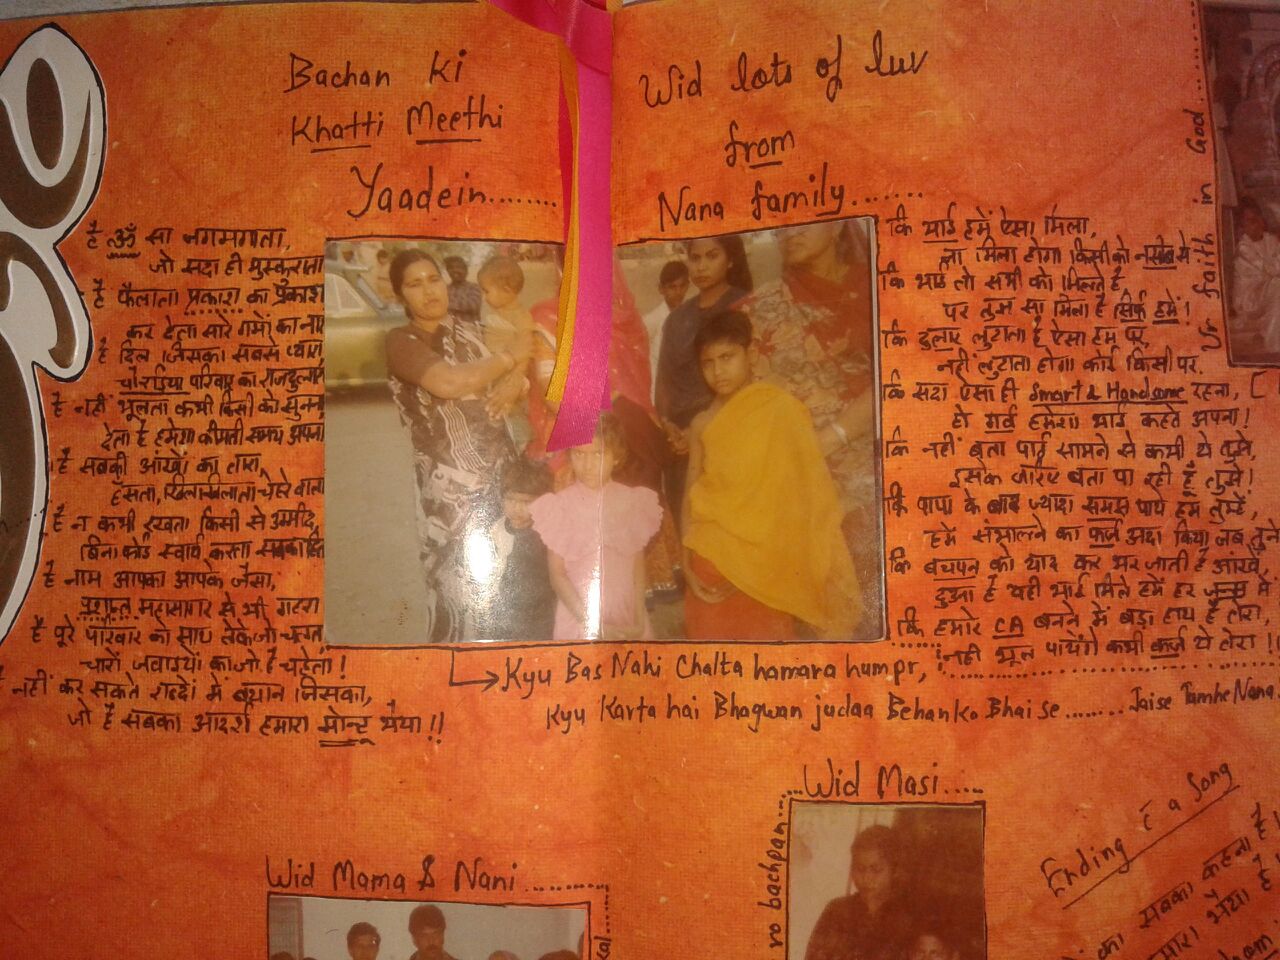 Bachan ki
Khatti Meethi
Yaadein........
Wid lots of luv
from
Nana family.......
है ॐ सा जगमगाता,
जो सदा ही मुस्कुराता
है फैलाता प्रकाश का प्रकाश
कर देता सारे गमों का नाश
है दिल जिसका सबसे प्यारा,
चौरड़िया परिवार का राजदुलारा
है नहीं भूलता कभी किसी को सुनना
देता है हमेशा कीमती समय अपना
है सबकी आंखों का तारा,
हँसता, खिलखिलाता चेहरे वाला
है न कभी रखता किसी से उम्मीद,
बिना कोई स्वार्थ करता सबका हित
है नाम आपका आपके जैसा,
प्रशान्त महासागर से भी गहरा
है पूरे परिवार को साथ लेके जो चलता
चारों जवाइयों का जो है चहेता!
नहीं कर सकते शब्दों में बयान जिसका,
जो है सबका आदर्श हमारा मोन्टू भैया!!
कि भाई हमें ऐसा मिला,
ना मिला होगा किसी को नसीब से
कि भाई तो सभी को मिलते है
पर तुम सा मिला है सिर्फ हमें!
कि दुलार लुटाता है ऐसा हम पर,
नहीं लुटाता होगा कोई किसी पर.
कि सदा ऐसा ही Smart & Handsome रहना,
हो गर्व हमेशा भाई कहते अपना!
कि नहीं बता पाई सामने से कभी ये तुझे,
इसके जरिए बता पा रही हूँ तुझे!
कि पापा के बाद ज्यादा समझ पाये हम तुम्हें,
हमें संभालने का फर्ज अदा किया जब तुने
कि बचपन को याद कर भर जाती है आंखे,
दुआ है यही भाई मिले हमें हर जन्म में
कि हमारे CA बनने में बड़ा हाथ है तेरा,
नहीं भूल पायेंगे कभी कर्ज ये तेरा!!
Kyu Bas Nahi Chalta hamara humpr,
Kyu Karta hai Bhagwan judaa Behan ko Bhai se........ Jaise Tumhe Nana
faith in God ......
Wid Mama & Nani ........
Wid Masi.....
ro bachpan...
Ending a Song
का सबका कहना है
हमारा भैया है